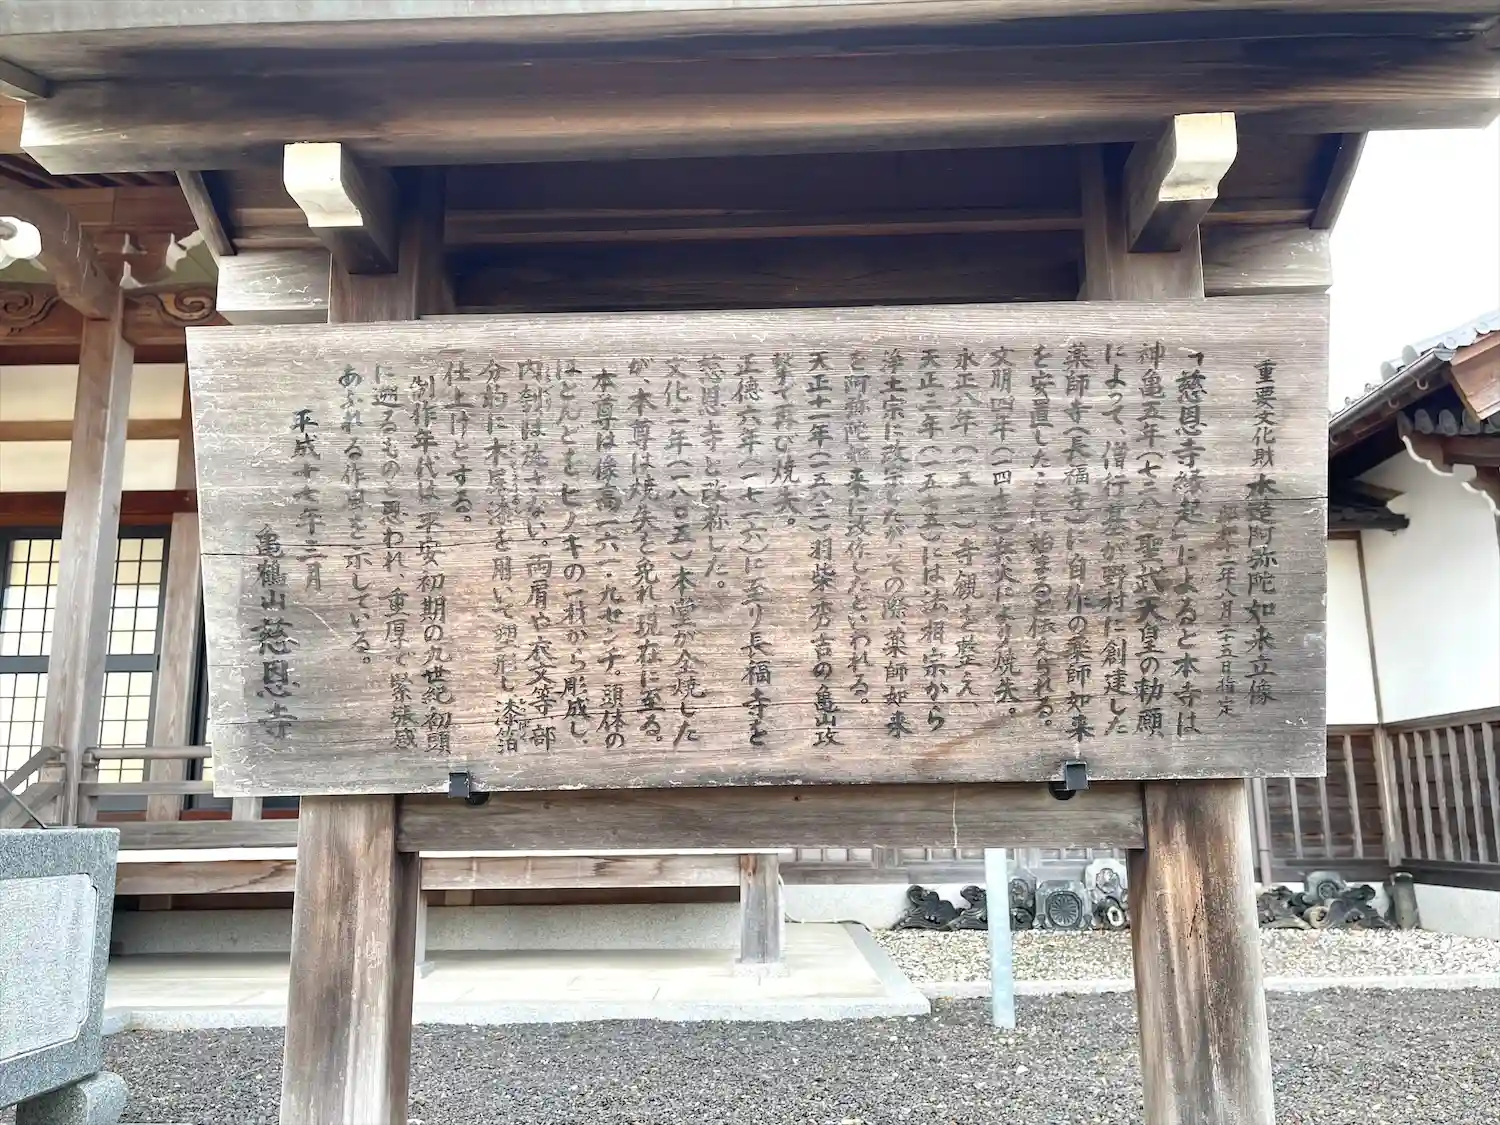 重要文化財 木造阿弥陀如来立像
昭和十一年八月二十五日指定
「慈恩寺縁起」によると本寺は
神亀五年(七二八)聖武天皇の勅願
によって、僧行基が野村に創建した
薬師寺(長福寺)に自作の薬師如来
を安置したことに始まると伝えられる。
文明四年(一四七二)兵火により焼失。
永正八年(一五一一)寺観を整え、
天正二年(一五七五)には法相宗から
浄土宗に改宗したがその際、薬師如来
を阿弥陀如来に改作したといわれる。
天正十一年(一五八三)羽柴秀吉の亀山攻
撃で再び焼失。
正徳六年(一七一六)に至り長福寺を
慈恩寺と改称した。
文化二年(一八〇五)本堂が全焼した
が、本尊は焼失を免れ現在に至る。
本尊は像高一六一・九センチ。頭体の
ほとんどをヒノキの一材から彫成し、
内刳は施さない。両肩や衣文等部
分的に木屎漆を用いて塑形し、漆箔
仕上げとする。
制作年代は平安初期の九世紀初頭
に遡るものと思われ、重厚で緊張感
あふれる作風を示している。
平成十七年三月
亀鶴山 慈恩寺